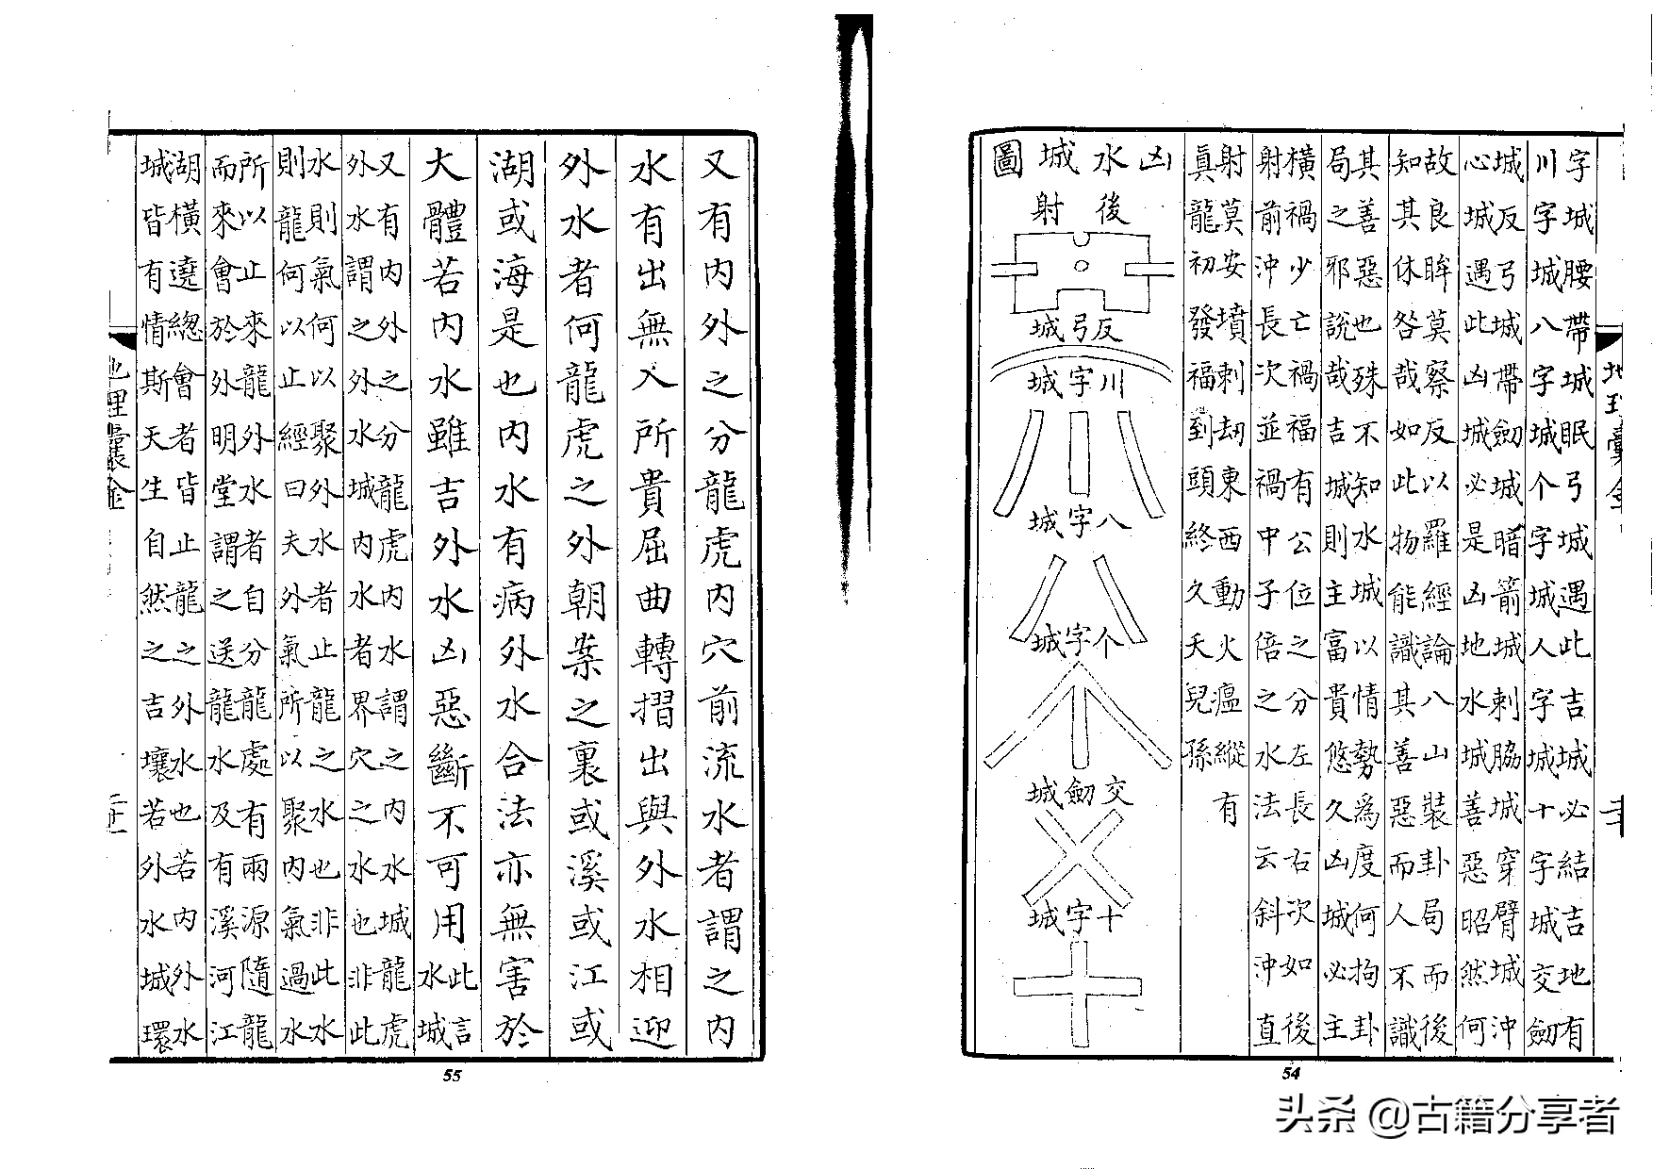 字城腰帶城眠弓城遇此吉城必結吉地有
川字城八字城个字城人字城十字城交劒
城反弓城帶劒城暗箭城刺脇城穿臂城沖
心城遇此凶城必是凶地水城善惡昭然何
故良眸莫察反以羅經論八山裝卦局而後
知其休咎哉如此物能識其善惡而人不識
其善惡也殊不知水城以情勢為度何拘卦
局之邪說哉吉城則主富貴悠久凶城必主
橫禍少亡禍福有公位之分左長右次如後
射前沖長次並禍中子倍之水法云斜沖直
射莫安墳刺劫東西動火瘟縱有
真龍初發福到頭終久夭兒孫
凶水城圖
後射
反弓城
川字城
八字城
个字城
交劒城
十字城
地理囊金
54
又有內外之分龍虎內穴前流水者謂之內
水有出無入所貴屈曲轉摺出與外水相迎
外水者何龍虎之外朝案之裏或溪或江或
湖或海是也內水有病外水合法亦無害於
大體若內水雖吉外水凶惡斷不可用此言水城
又有內外之分龍虎內水謂之內水城龍虎
外水謂之外水城內水者界穴之水也非此
水則氣何以聚外水者止龍之水也非此水
則龍何以止經曰夫外氣所以聚內氣過水
所以止來龍外水者自分龍處有兩源隨龍
而來會於外明堂謂之送龍水及有溪河江
湖橫遶總會者皆止龍之外水也若內外水
城皆有情斯天生自然之吉壤若外水城環
地理囊金
55
头条 @古籍分享者